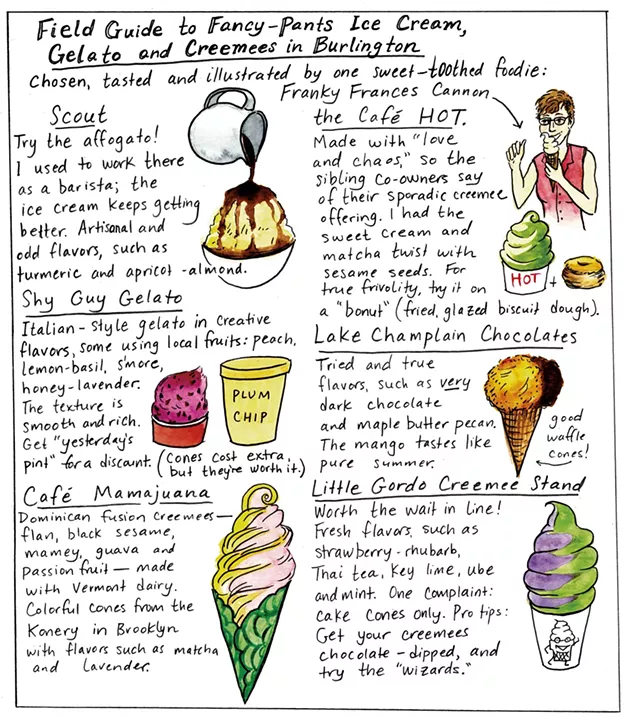 Field Guide to Fancy-Pants Ice Cream,
Gelato and Creemees in Burlington
Chosen, tasted and illustrated by one sweet-toothed foodie:
Franky Frances Cannon
Scout
Try the affogato!
I used to work there
as a barista; the
ice cream keeps getting
better. Artisanal and
odd flavors, such as
turmeric and apricot-almond.
the Café HOT.
Made with "love
and chaos," so the
sibling co-owners say
of their sporadic creemee
offering. I had the
sweet cream and
matcha twist with
sesame seeds. For
true frivolity, try it on
a "bonut" (fried, glazed biscuit dough).
HOT
+
Shy Guy Gelato
Italian-style gelato in creative
flavors, some using local fruits: peach,
lemon-basil, s'more,
honey-lavender.
The texture is
smooth and rich.
Get "yesterday's
pint" for a discount. (Cones cost extra,
but they're worth it.)
PLUM
CHIP
Lake Champlain Chocolates
Tried and true
flavors, such as very
dark chocolate
and maple butter pecan.
The mango tastes like
pure summer.
good
waffle
cones!
Café Mamajuana
Dominican fusion creemees—
flan, black sesame,
mamey, guava and
passion fruit — made
with Vermont dairy.
Colorful cones from the
Konery in Brooklyn
with flavors such as matcha
and lavender.
Little Gordo Creemee Stand
Worth the wait in line!
Fresh flavors, such as
strawberry-rhubarb,
Thai tea, key lime, ube
and mint. One complaint:
cake cones only. Pro tips:
Get your creemees
chocolate-dipped, and
try the "wizards."